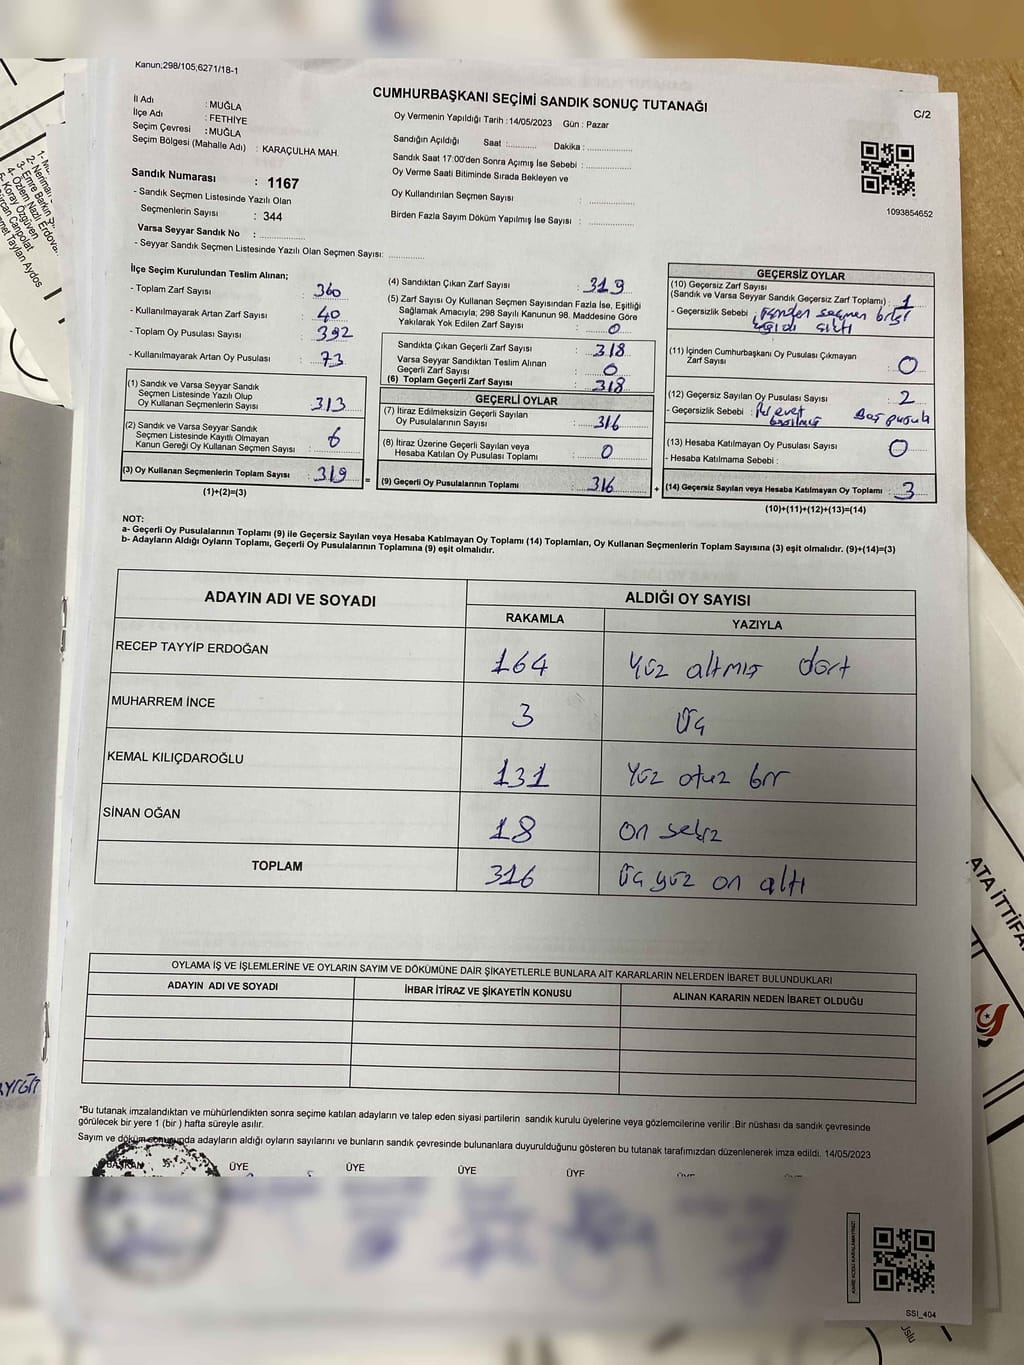 Kanun;298/105;6271/18-1
CUMHURBAŞKANI SEÇİMİ SANDIK SONUÇ TUTANAĞI
C/2
İl Adı : MUĞLA
İlçe Adı : FETHİYE
Seçim Çevresi : MUĞLA
Seçim Bölgesi (Mahalle Adı) : KARAÇULHA MAH.
Sandık Numarası : 1167
- Sandık Seçmen Listesinde Yazılı Olan
Seçmenlerin Sayısı : 344
Varsa Seyyar Sandık No : ..............
- Seyyar Sandık Seçmen Listesinde Yazılı Olan Seçmen Sayısı: ............
Oy Vermenin Yapıldığı Tarih : 14/05/2023 Gün : Pazar
Sandığın Açıldığı Saat :.......... Dakika : ..............
Sandık Saat 17:00'den Sonra Açımış İse Sebebi : ..............
Oy Verme Saati Bitiminde Sırada Bekleyen ve
Oy Kullandırılan Seçmen Sayısı : ..............
Birden Fazla Sayım Döküm Yapılmış İse Sayısı : ..............
1093854652
İlçe Seçim Kurulundan Teslim Alınan;
- Toplam Zarf Sayısı : 360
- Kullanılmayarak Artan Zarf Sayısı : 40
- Toplam Oy Pusulası Sayısı : 392
- Kullanılmayarak Artan Oy Pusulası : 73
(1) Sandık ve Varsa Seyyar Sandık
Seçmen Listesinde Yazılı Olup
Oy Kullanan Seçmenlerin Sayısı : 313
(2) Sandık ve Varsa Seyyar Sandık
Seçmen Listesinde Kayıtlı Olmayan
Kanun Gereği Oy Kullanan Seçmen Sayısı : 6
(3) Oy Kullanan Seçmenlerin Toplam Sayısı : 319 =
(1)+(2)=(3)
(4) Sandıktan Çıkan Zarf Sayısı : 319
(5) Zarf Sayısı Oy Kullanan Seçmen Sayısından Fazla İse, Eşitliği
Sağlamak Amacıyla; 298 Sayılı Kanunun 98. Maddesine Göre
Yakılarak Yok Edilen Zarf Sayısı : 0
Sandıkta Çıkan Geçerli Zarf Sayısı : 318
Varsa Seyyar Sandıktan Teslim Alınan
Geçerli Zarf Sayısı : 0
(6) Toplam Geçerli Zarf Sayısı : 318
GEÇERLİ OYLAR
(7) İtiraz Edilmeksizin Geçerli Sayılan
Oy Pusulalarının Sayısı : 316
(8) İtiraz Üzerine Geçerli Sayılan veya
Hesaba Katılan Oy Pusulası Toplamı : 0
(9) Geçerli Oy Pusulalarının Toplamı : 316 +
GEÇERSİZ OYLAR
(10) Geçersiz Zarf Sayısı
(Sandık ve Varsa Seyyar Sandık Geçersiz Zarf Toplamı) : 1
- Geçersizlik Sebebi : içinden seçmen bilgi
kağıdı çıktı
(11) İçinden Cumhurbaşkanı Oy Pusulası Çıkmayan
Zarf Sayısı : 0
(12) Geçersiz Sayılan Oy Pusulası Sayısı : 2
- Geçersizlik Sebebi : Boş pusula
(13) Hesaba Katılmayan Oy Pusulası Sayısı : 0
- Hesaba Katılmama Sebebi :
(14) Geçersiz Sayılan veya Hesaba Katılmayan Oy Toplamı : 3
(10)+(11)+(12)+(13)=(14)
NOT:
a- Geçerli Oy Pusulalarının Toplamı (9) ile Geçersiz Sayılan veya Hesaba Katılmayan Oy Toplamı (14) Toplamları, Oy Kullanan Seçmenlerin Toplam Sayısına (3) eşit olmalıdır. (9)+(14)=(3)
b- Adayların Aldığı Oyların Toplamı, Geçerli Oy Pusulalarının Toplamına (9) eşit olmalıdır.
ADAYIN ADI VE SOYADI ALDIĞI OY SAYISI
RAKAMLA YAZIYLA
RECEP TAYYİP ERDOĞAN 164 Yüz altmış dört
MUHARREM İNCE 3 üç
KEMAL KILIÇDAROĞLU 131 Yüz otuz bir
SİNAN OĞAN 18 on sekiz
TOPLAM 316 üç yüz on altı
OYLAMA İŞ VE İŞLEMLERİNE VE OYLARIN SAYIM VE DÖKÜMÜNE DAİR ŞİKAYETLERLE BUNLARA AİT KARARLARIN NELERDEN İBARET BULUNDUKLARI
ADAYIN ADI VE SOYADI İHBAR İTİRAZ VE ŞİKAYETİN KONUSU ALINAN KARARIN NEDEN İBARET OLDUĞU
*Bu tutanak imzalandıktan ve mühürlendikten sonra seçime katılan adayların ve talep eden siyasi partilerin sandık kurulu üyelerine veya gözlemcilerine verilir .Bir nüshası da sandık çevresinde
görülecek bir yere 1 (bir ) hafta süreyle asılır.
Sayım ve döküm sonucunda adayların aldığı oyların sayılarını ve bunların sandık çevresinde bulunanlara duyurulduğunu gösteren bu tutanak tarafımızdan düzenlenerek imza edildi. 14/05/2023
BAŞKAN ÜYE ÜYE ÜYE ÜYE
SSI_404
2- Neriman
3- Emre Barkın
4- Özlem Nazlı Erdova
5- Koray Özgüven
Canpolat
Taylan Aydos
ATA İTTİFA